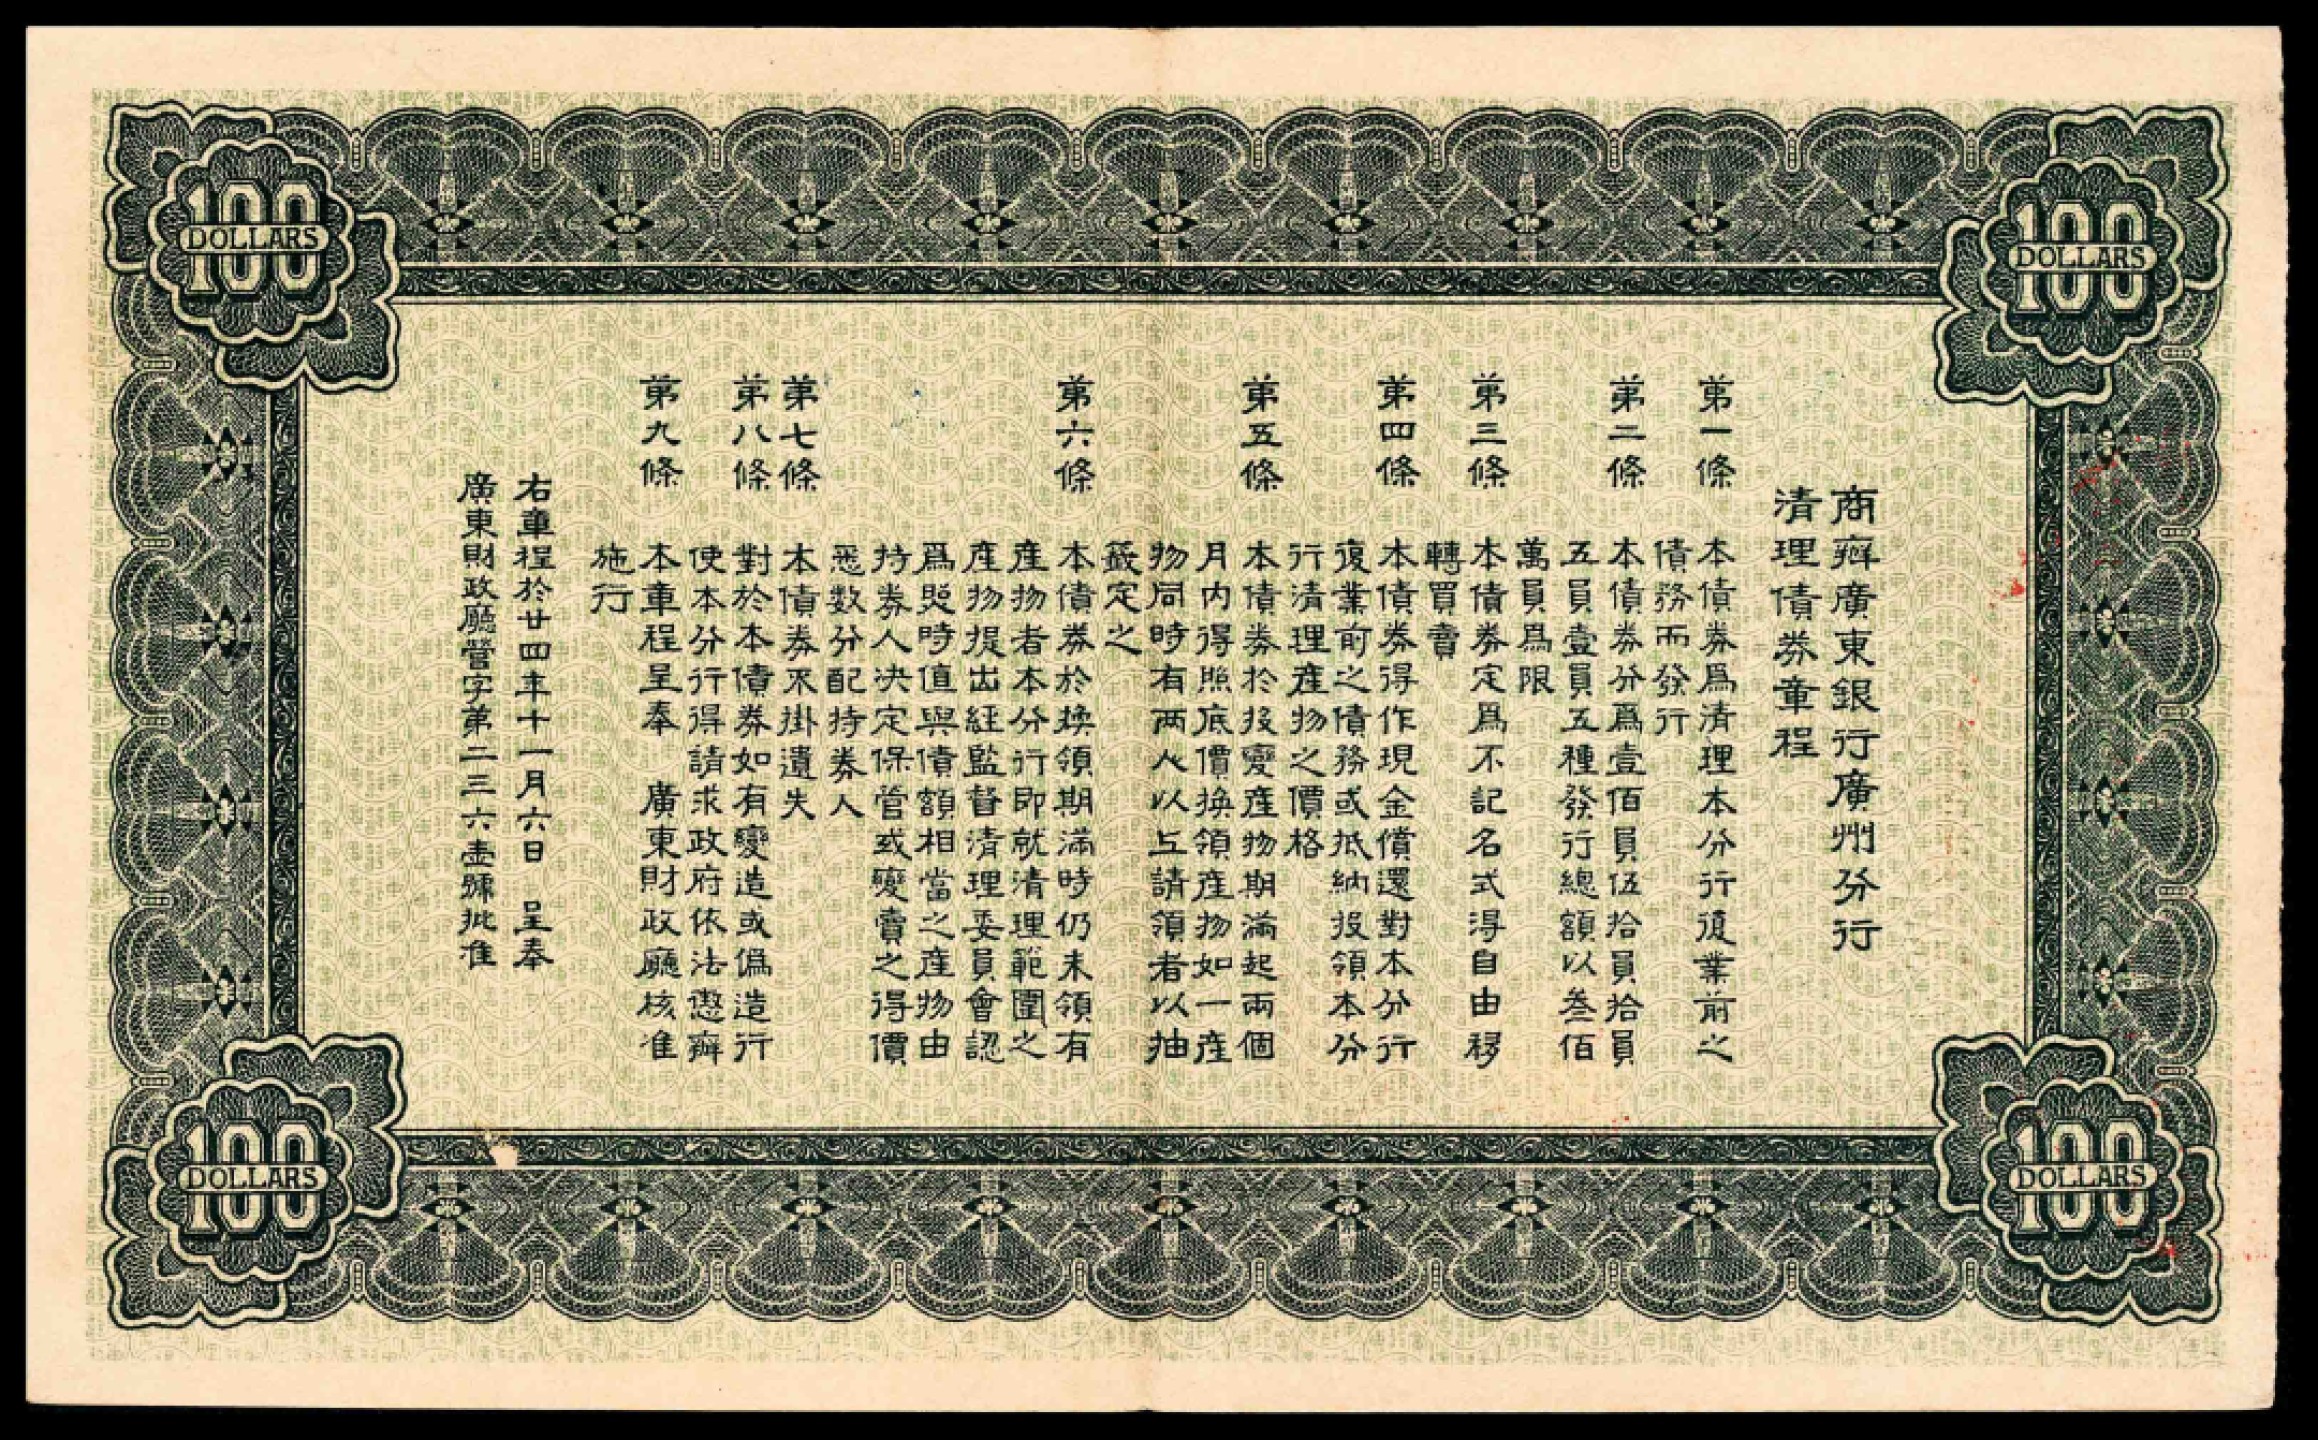 100
DOLLARS
100
DOLLARS
商辦廣東銀行廣州分行
清理債券章程
第一條 本債券爲清理本分行復業前之
債務而發行
第二條 本債券分爲壹佰員伍拾員拾員
五員壹員五種發行總額以叁佰
萬員爲限
第三條 本債券定爲不記名式得自由移
轉買賣
第四條 本債券得作現金償還對本分行
復業前之債務或抵納投領本分
行清理產物之價格
第五條 本債券於投變產物期滿起兩個
月內得照底價換領產物如一產
物同時有两人以上請領者以抽
籤定之
第六條 本債券於換領期滿時仍未領有
產物者本分行即就清理範圍之
產物提出經監督清理委員會認
爲照時值與債額相當之產物由
持券人決定保管或變賣之得價
悉數分配持券人
第七條 本債券不掛遺失
第八條 對於本債券如有變造或僞造行
使本分行得請求政府依法懲辦
第九條 本章程呈奉 廣東財政廳核准
施行
右章程於廿四年十一月六日 呈奉
廣東財政廳營字第二三六壹號批准
100
DOLLARS
100
DOLLARS